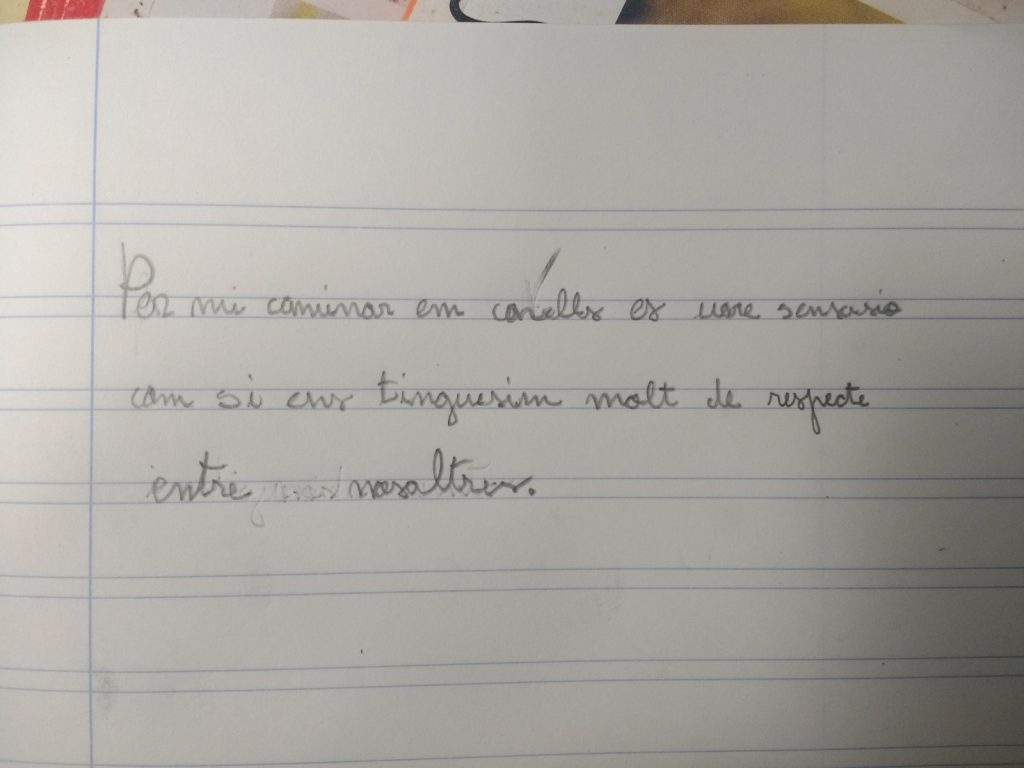 Per mi caminar em cavalls es una sensasio
com si ens tinguesim molt de respecte
entre nosaltres.